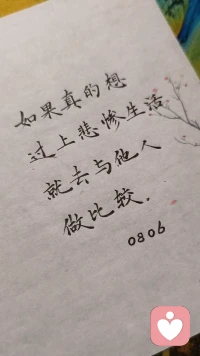 如果真的想
过上悲惨生活
就去与他人
做比较.
0806